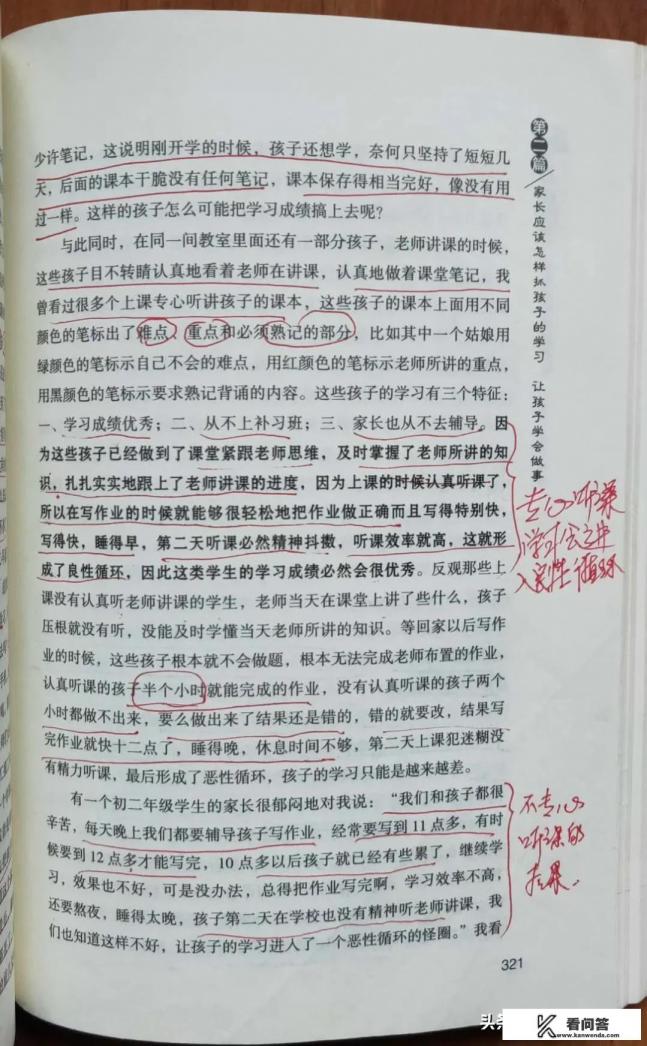 少许笔记，这说明刚开学的时候，孩子还想学，奈何只坚持了短短几
天，后面的课本干脆没有任何笔记，课本保存得相当完好，像没有用
过一样。这样的孩子怎么可能把学习成绩搞上去呢？
与此同时，在同一间教室里面还有一部分孩子，老师讲课的时候，
这些孩子目不转睛认真地看着老师在讲课，认真地做着课堂笔记，我
曾看过很多个上课专心听讲孩子的课本，这些孩子的课本上面用不同
颜色的笔标出了难点、重点和必须熟记的部分，比如其中一个姑娘用
绿颜色的笔标示自己不会的难点，用红颜色的笔标示老师所讲的重点，
用黑颜色的笔标示要求熟记背诵的内容。这些孩子的学习有三个特征：
一、学习成绩优秀；二、从不上补习班；三、家长也从不去辅导。因
为这些孩子已经做到了课堂紧跟老师思维，及时掌握了老师所讲的知
识，扎扎实实地跟上了老师讲课的进度，因为上课的时候认真听课了，
所以在写作业的时候就能够很轻松地把作业做正确而且写得特别快，
写得快，睡得早，第二天听课必然精神抖擞，听课效率就高，这就形
成了良性循环，因此这类学生的学习成绩必然会很优秀。反观那些上
课没有认真听老师讲课的学生，老师当天在课堂上讲了些什么，孩子
压根就没有听，没能及时学懂当天老师所讲的知识。等回家以后写作
业的时候，这些孩子根本就不会做题，根本无法完成老师布置的作业，
认真听课的孩子半个小时就能完成的作业，没有认真听课的孩子两个
小时都做不出来，要么做出来了结果还是错的，错的就要改，结果写
完作业就快十二点了，睡得晚，休息时间不够，第二天上课犯迷糊没
有精力听课，最后形成了恶性循环，孩子的学习只能是越来越差。
有一个初二年级学生的家长很郁闷地对我说：“我们和孩子都很
辛苦，每天晚上我们都要辅导孩子写作业，经常要写到11点多，有时
候要到12点多才能写完，10点多以后孩子就已经有些累了，继续学
习，效果也不好，可是没办法，总得把作业写完啊，学习效率不高，
还要熬夜，睡得太晚，孩子第二天在学校也没有精神听老师讲课，我
们也知道这样不好，让孩子的学习进入了一个恶性循环的怪圈。”我看
第二篇
家长应该怎样抓孩子的学习 让孩子学会做事
专心听课
学习会之中
入良性循环
不专心
听课的
后果.
321
头条
K 看问答
www.kanwenda.com